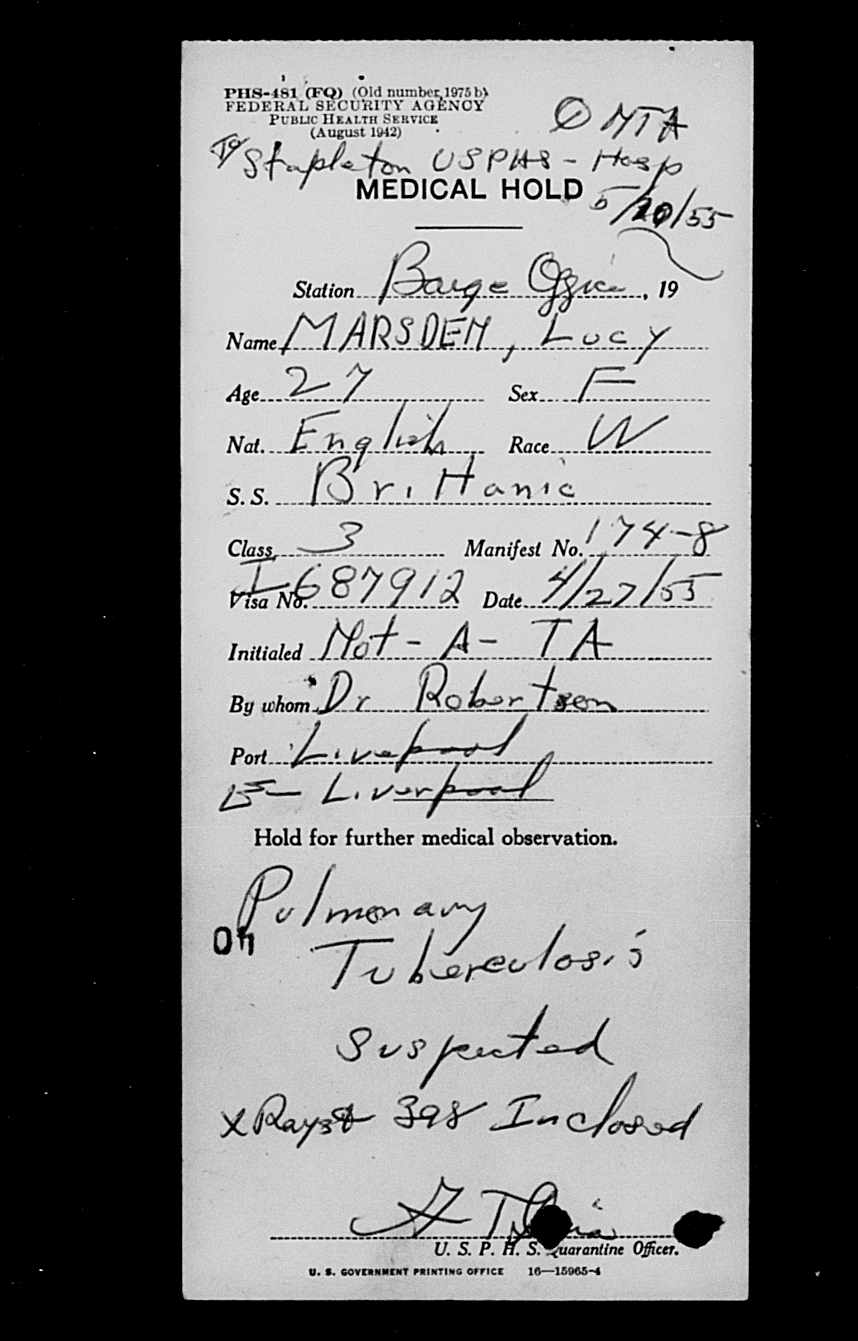 PHS-481 (FQ) (Old number, 1975 b)
FEDERAL SECURITY AGENCY
PUBLIC HEALTH SERVICE
(August 1942)
NTA
To Stapleton USPHS - Hosp
MEDICAL HOLD
5/20/55
Station Barge Office, 19
Name MARSDEN, Lucy
Age 27 Sex F
Nat. English Race W
S. S. Brittanic
Class 3 Manifest No. 174-8
Visa No. I 687912 Date 4/27/55
Initialed Not - A - TA
By whom Dr Robertson
Port Liverpool
E - Liverpool
Hold for further medical observation.
Pulmonary
Tuberculosis
Suspected
X Rays 398 Inclosed
U. S. P. H. S. Quarantine Officer.
U. S. GOVERNMENT PRINTING OFFICE 16—15965-4